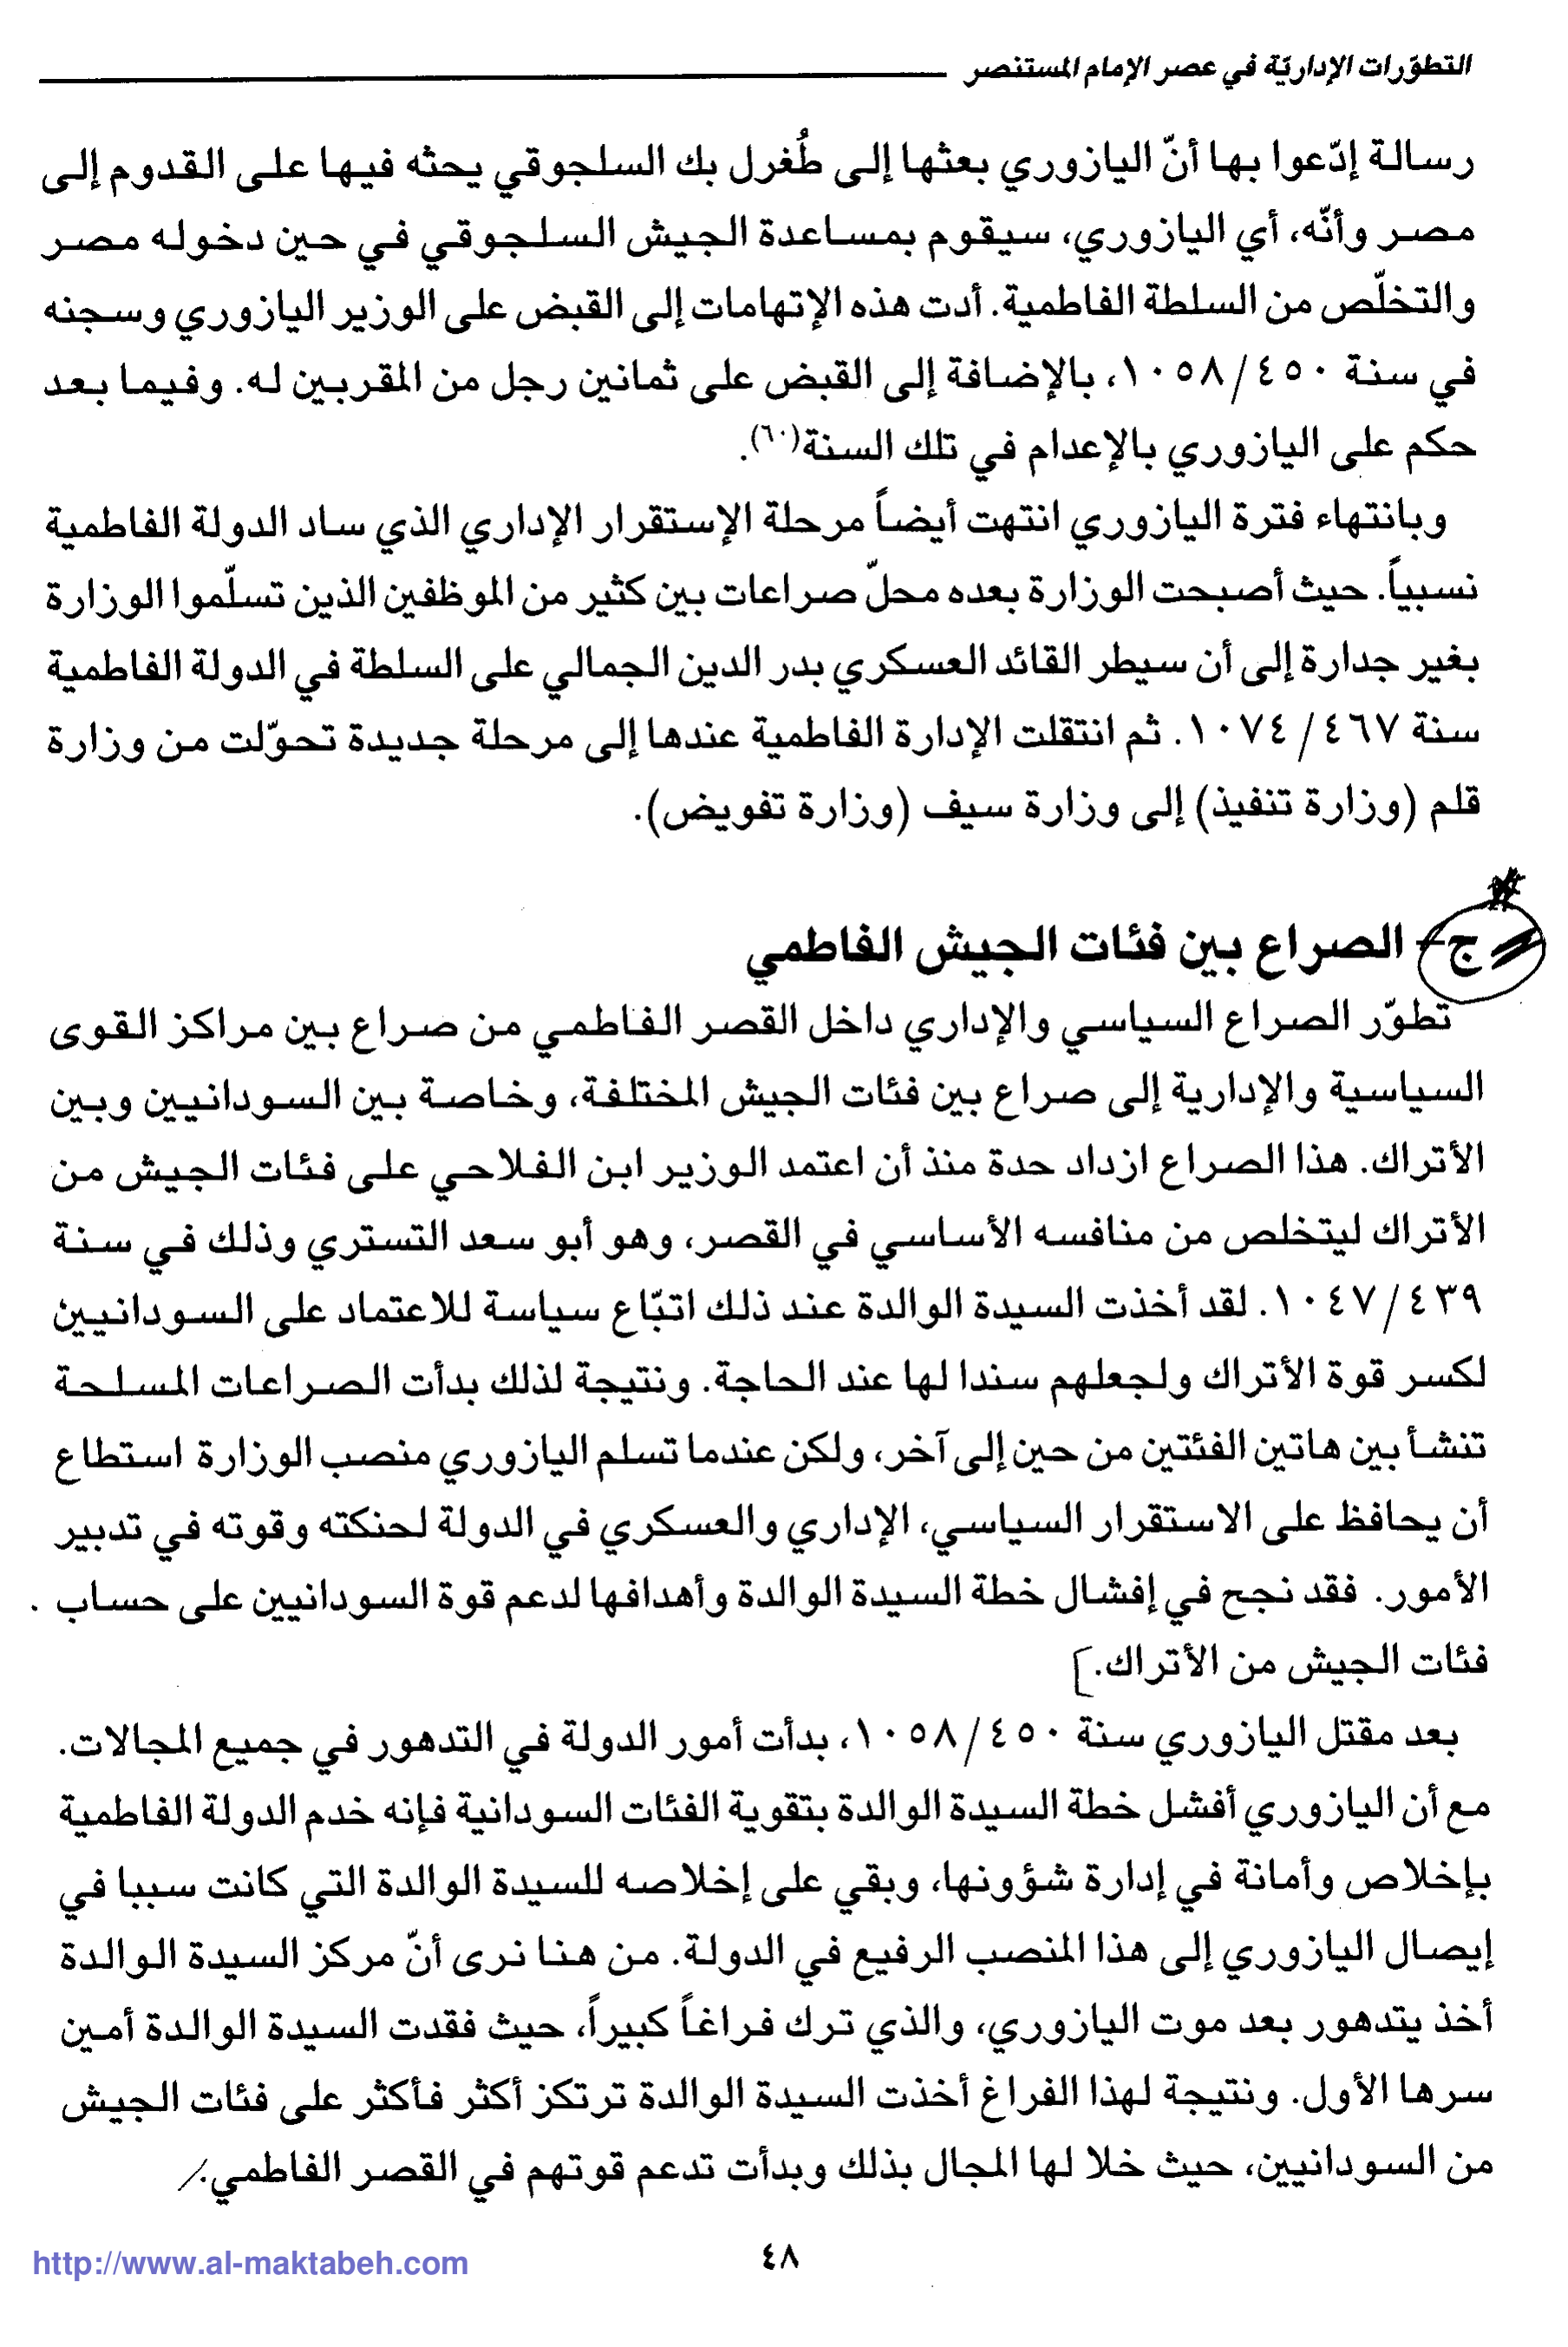 التطوّرات الإداريّة في عصر الإمام المستنصر
رسالة إدّعوا بها أنّ اليازوري بعثها إلى طُغرل بك السلجوقي يحثه فيها على القدوم إلى
مصر وأنّه، أي اليازوري، سيقوم بمساعدة الجيش السلجوقي في حين دخوله مصر
والتخلّص من السلطة الفاطمية. أدت هذه الإتهامات إلى القبض على الوزير اليازوري وسجنه
في سنة ٤٥٠/١٠٥٨، بالإضافة إلى القبض على ثمانين رجل من المقربين له. وفيما بعد
حكم على اليازوري بالإعدام في تلك السنة(٦٠).
وبانتهاء فترة اليازوري انتهت أيضاً مرحلة الإستقرار الإداري الذي ساد الدولة الفاطمية
نسبياً. حيث أصبحت الوزارة بعده محلّ صراعات بين كثير من الموظفين الذين تسلّموا الوزارة
بغير جدارة إلى أن سيطر القائد العسكري بدر الدين الجمالي على السلطة في الدولة الفاطمية
سنة ٤٦٧/١٠٧٤. ثم انتقلت الإدارة الفاطمية عندها إلى مرحلة جديدة تحوّلت من وزارة
قلم (وزارة تنفيذ) إلى وزارة سيف (وزارة تفويض).
ج- الصراع بين فئات الجيش الفاطمي
تطوّر الصراع السياسي والإداري داخل القصر الفاطمي من صراع بين مراكز القوى
السياسية والإدارية إلى صراع بين فئات الجيش المختلفة، وخاصة بين السودانيين وبين
الأتراك. هذا الصراع ازداد حدة منذ أن اعتمد الوزير ابن الفلاحي على فئات الجيش من
الأتراك ليتخلص من منافسه الأساسي في القصر، وهو أبو سعد التستري وذلك في سنة
٤٣٩/١٠٤٧. لقد أخذت السيدة الوالدة عند ذلك اتبّاع سياسة للاعتماد على السودانيين
لكسر قوة الأتراك ولجعلهم سندا لها عند الحاجة. ونتيجة لذلك بدأت الصراعات المسلحة
تنشأ بين هاتين الفئتين من حين إلى آخر، ولكن عندما تسلم اليازوري منصب الوزارة استطاع
أن يحافظ على الاستقرار السياسي، الإداري والعسكري في الدولة لحنكته وقوته في تدبير
الأمور. فقد نجح في إفشال خطة السيدة الوالدة وأهدافها لدعم قوة السودانيين على حساب
فئات الجيش من الأتراك.]
بعد مقتل اليازوري سنة ٤٥٠/١٠٥٨، بدأت أمور الدولة في التدهور في جميع المجالات.
مع أن اليازوري أفشل خطة السيدة الوالدة بتقوية الفئات السودانية فإنه خدم الدولة الفاطمية
بإخلاص وأمانة في إدارة شؤونها، وبقي على إخلاصه للسيدة الوالدة التي كانت سببا في
إيصال اليازوري إلى هذا المنصب الرفيع في الدولة. من هنا نرى أنّ مركز السيدة الوالدة
أخذ يتدهور بعد موت اليازوري، والذي ترك فراغاً كبيراً، حيث فقدت السيدة الوالدة أمين
سرها الأول. ونتيجة لهذا الفراغ أخذت السيدة الوالدة ترتكز أكثر فأكثر على فئات الجيش
من السودانيين، حيث خلا لها المجال بذلك وبدأت تدعم قوتهم في القصر الفاطمي.
٤٨
http://www.al-maktabeh.com